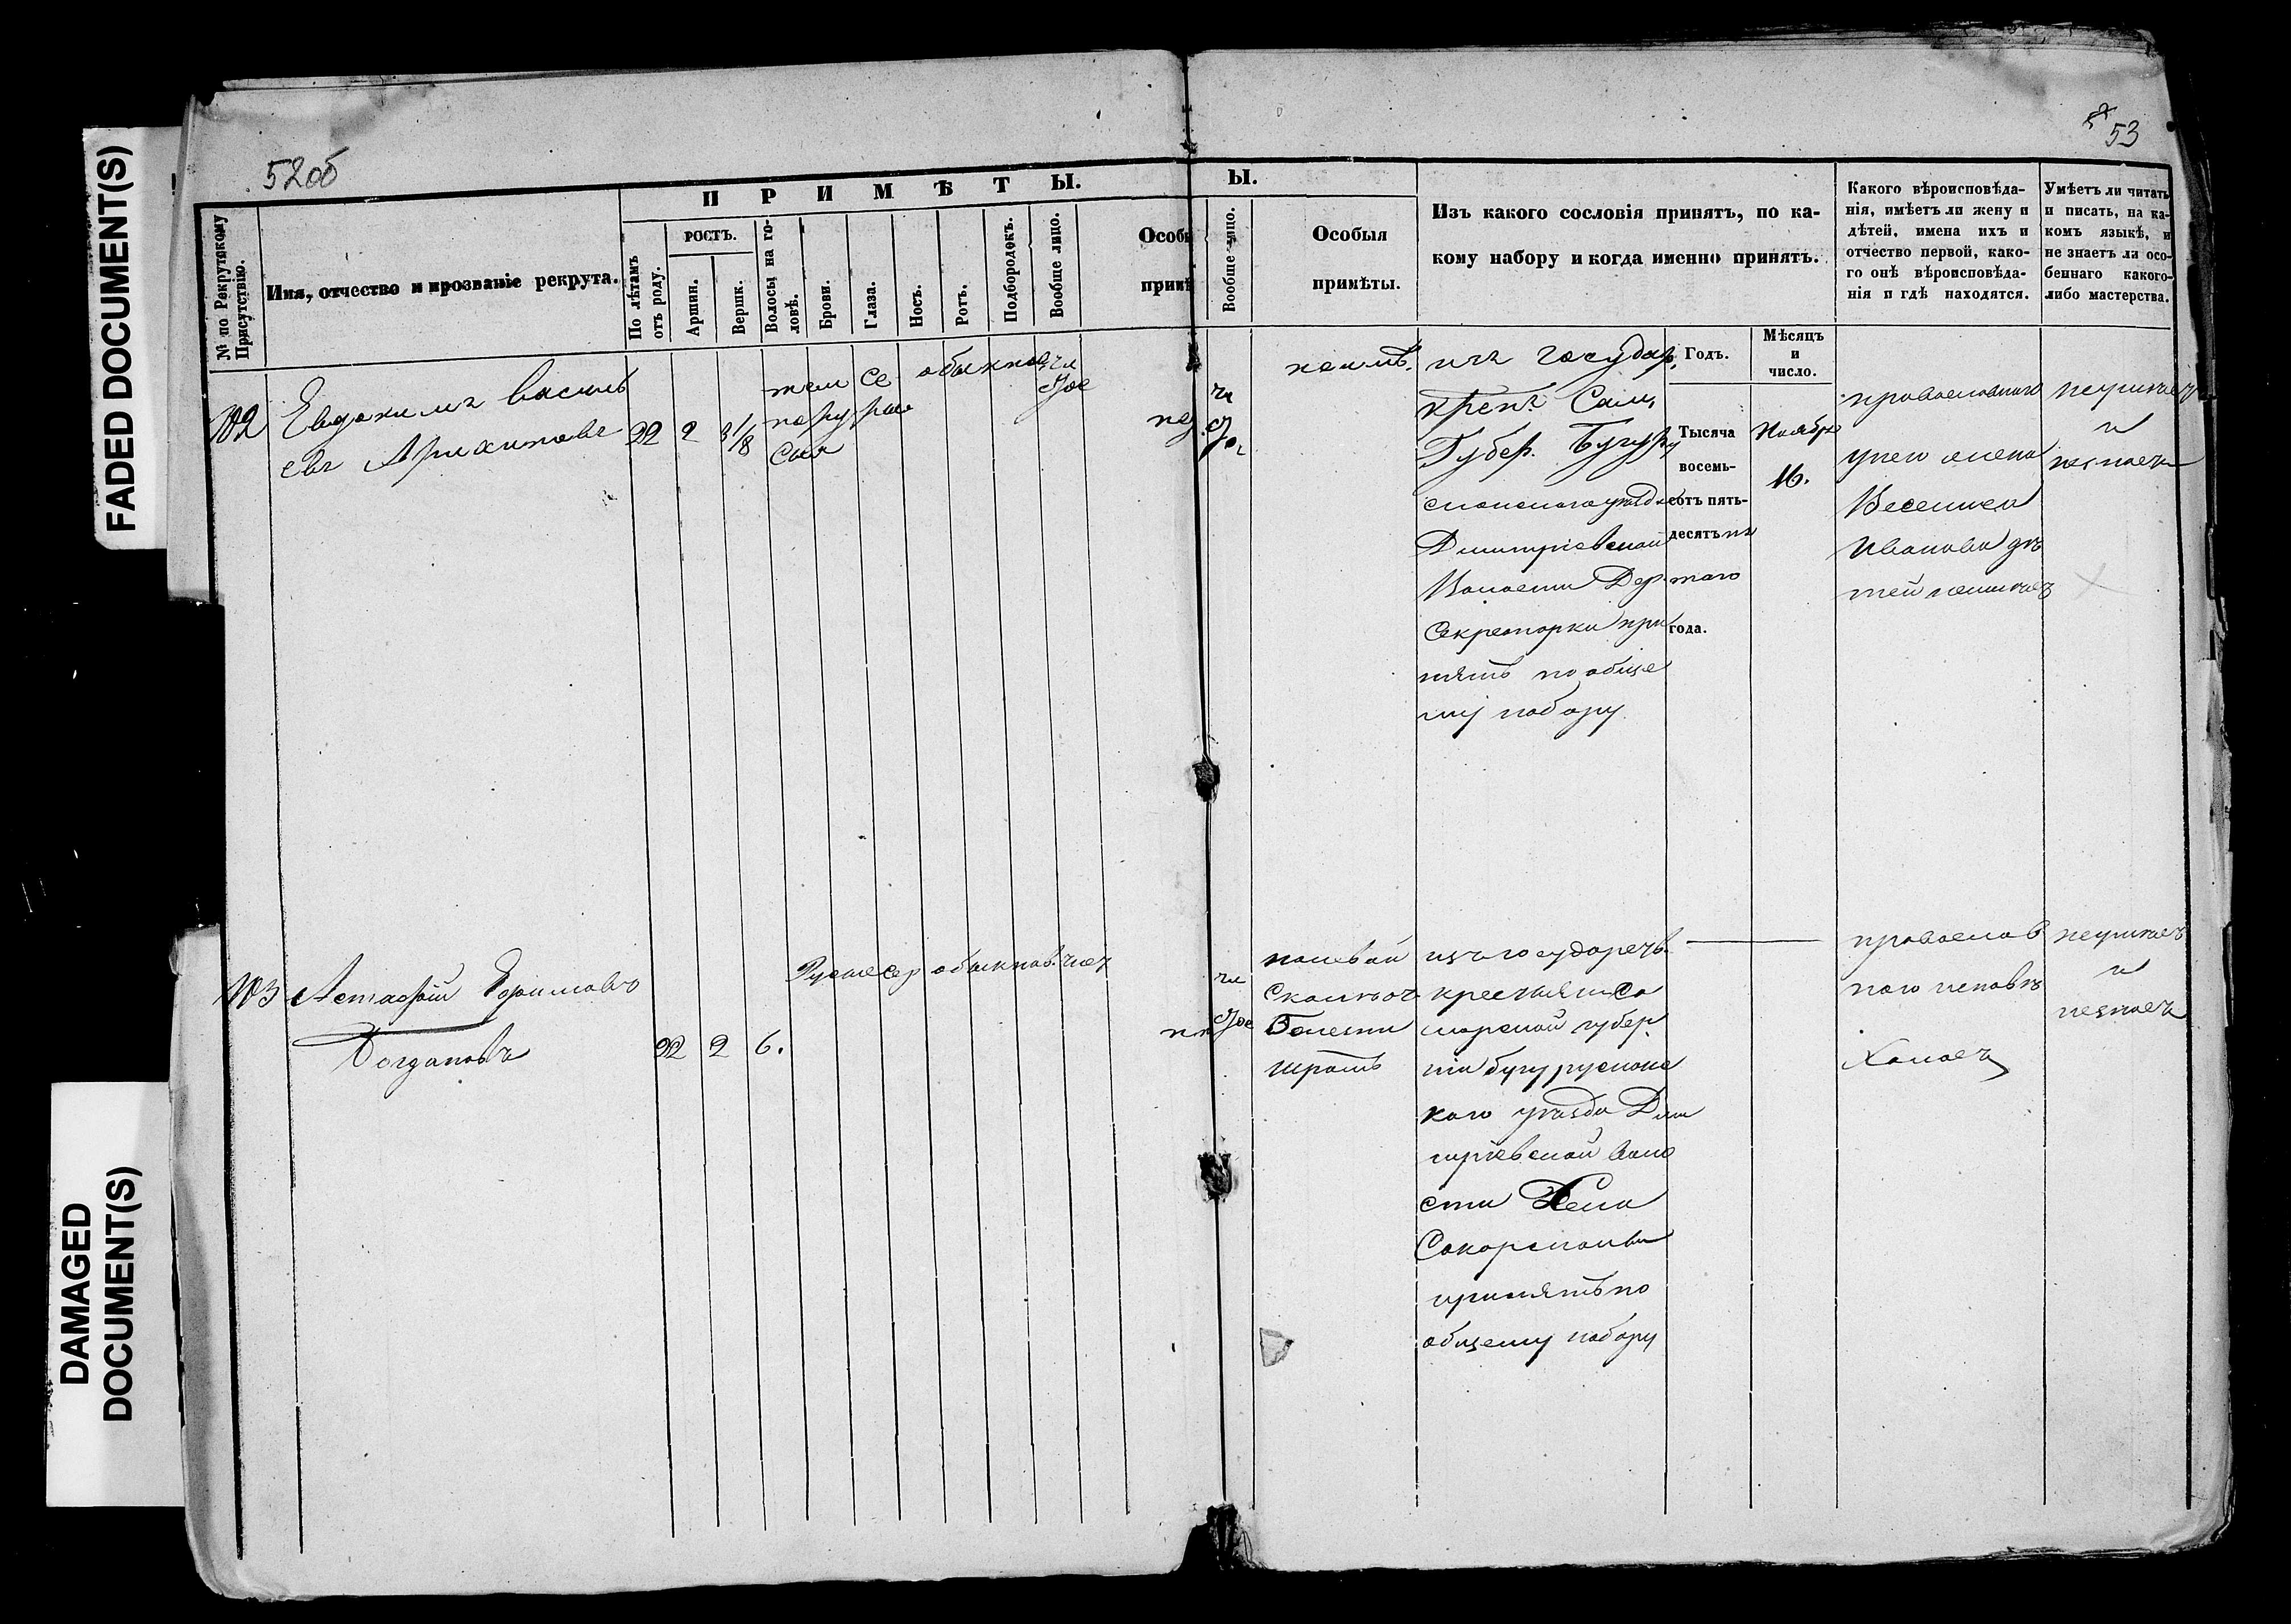 FADED DOCUMENT(S)
DAMAGED
DOCUMENT(S)
52об
53
П Р И М Ѣ Т Ы.
№ по Рекрутскому
Присутствію.
Имя, отчество и прозваніе рекрута.
По лѣтамъ
отъ роду.
РОСТЪ.
Аршин.
Вершк.
Волосы на го-
ловѣ.
Брови.
Глаза.
Носъ.
Ротъ.
Подбородокъ.
Вообще лицо.
Особы
примѣ
Ы.
Вообще лицо.
Особыя
примѣты.
Изъ какого сословія принятъ, по ка-
кому набору и когда именно принятъ.
Какого вѣроисповѣда-
нія, имѣетъ ли жену и
дѣтей, имена ихъ и
отчество первой, како-
го онѣ вѣроисповѣда-
нія и гдѣ находятся.
Умѣетъ ли читать
и писать, на ка-
комъ языкѣ, и
не знаетъ ли осо-
беннаго какого-
либо мастерства.
Годъ.
Мѣсяцъ
и
число.
102 Евдокимъ Василь
евъ Архиповъ 22 2 3 1/8
темн
сѣ
обыкнов
чи
стое
чи
сто
неимѣ.
изъ государ.
крест. Сам.
Губер. Бугуру
сланскаго уѣзда
Дмитріевской
Волости Дер.
Секретарки при
нятъ по обще
му набору
Тысяча
восемь-
сотъ пять-
десятъ пя
таго
года.
Ноября
16.
православнаго
у него жена
Ивановна дѣ
тей неимѣетъ
неумѣетъ
и
незнаетъ
103 Астафій Ефимовъ
Богдановъ 22 2 6.
Русые сер обыкнов. чист
чи
стое
на
болезни
изъ государств.
крестьянъ Са
марской губер
ніи бугурусланс
каго уѣзда Дми
тріевской воло
сти Села
принятъ по
общему набору
православ
наго исповѣ
Холостъ
неумѣетъ
и
незнаетъ